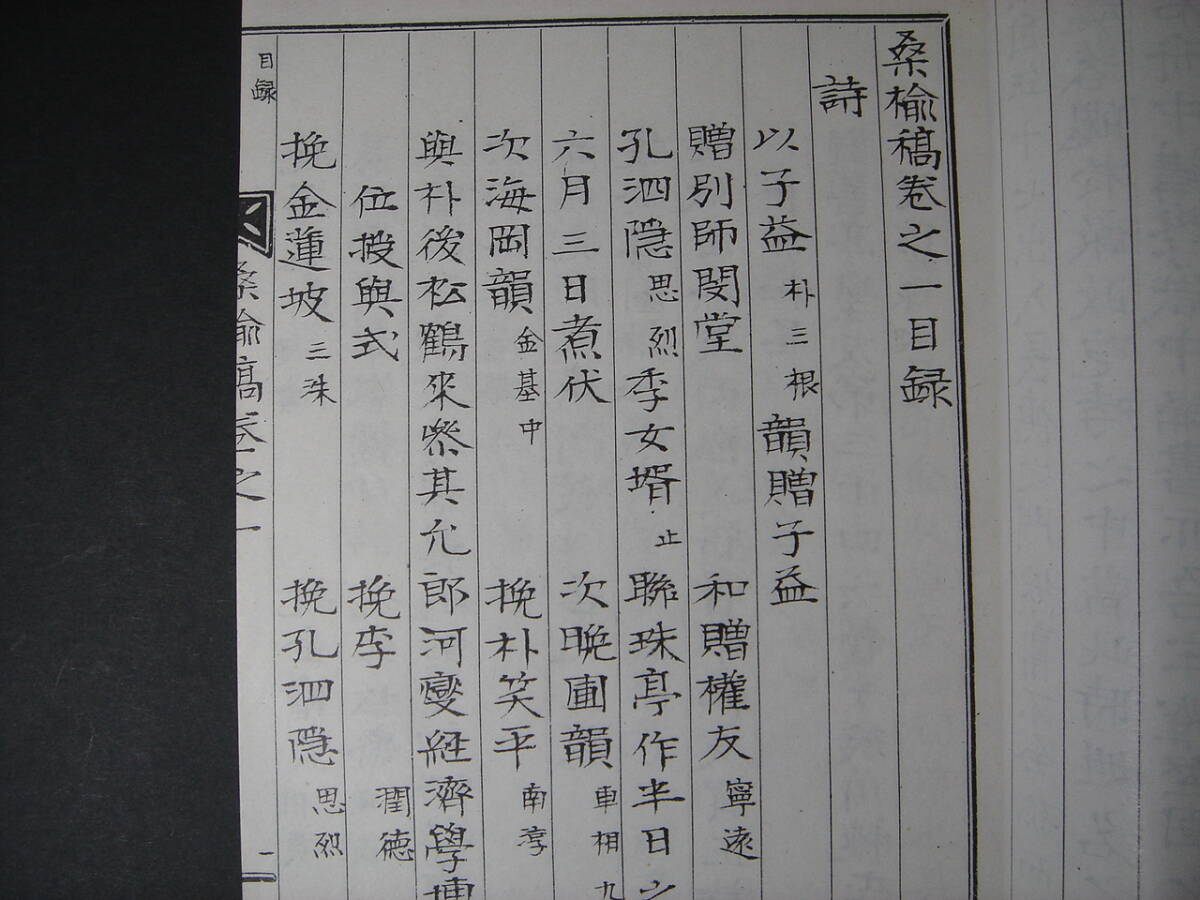 桑楡稿卷之一目録
詩
以子益朴三根韻贈子益
贈別師閔堂 和贈權友寧遠
孔泗隱思烈季女壻 止聯珠亭作半日之
六月三日煮伏 次晩圃韻車相九
次海岡韻金基中 挽朴笑平南淳
與朴後松鶴來祭其允郎河燮經濟學博
位投與式 挽李潤德
挽金蓮坡三洙 挽孔泗隠思烈
目録 桑楡稿卷之一 一